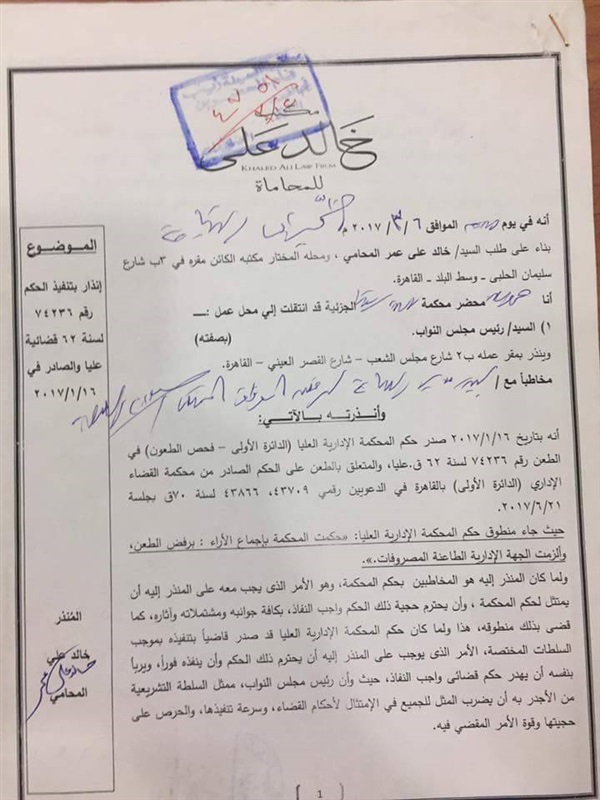 مكتب
خالد علي
KHALED ALI LAW FIRM
للمحاماة
أنه في يوم الموافق ٢٠١٧/٣/٦ م
بناء على طلب السيد/ خالد على عمر المحامي ، ومحله المختار مكتبه الكائن مقره في ٣ب شارع
سليمان الحلبى – وسط البلد – القاهرة.
أنا محضر محكمة الجزئية قد انتقلت إلي محل عمل :ــــ
١) السيد/ رئيس مجلس النواب. (بصفته)
وينذر بمقر عمله ب٢ شارع مجلس الشعب – شارع القصر العيني – القاهرة.
مخاطباً مع /
وأنذرته بــالآتي:
أنه بتاريخ ٢٠١٧/١/١٦ صدر حكم المحكمة الإدارية العليا (الدائرة الأولى – فحص الطعون) في
الطعن رقم ٧٤٢٣٦ لسنة ٦٢ ق.عليا، والمتعلق بالطعن على الحكم الصادر من محكمة القضاء
الإداري (الدائرة الأولى) بالقاهرة في الدعويين رقمي ٤٣٧٠٩، ٤٣٨٦٦ لسنة ٧٠ق بجلسة
٢٠١٧/٦/٢١.
حيث جاء منطوق حكم المحكمة الإدارية العليا: «حكمت المحكمة بإجماع الأراء : برفض الطعن،
وألزمت الجهة الإدارية الطاعنة المصروفات.».
ولما كان المنذر إليه هو المخاطبين بحكم المحكمة، وهو الأمر الذى يجب معه على المنذر إليه أن
يمتثل لحكم المحكمة ، وأن يحترم حجية ذلك الحكم واجب النفاذ، بكافة جوانبه ومشتملاته وآثاره، كما
قضى بذلك منطوقه، هذا ولما كان حكم المحكمة الإدارية العليا قد صدر قاضياً بتنفيذه بموجب
السلطات المختصة، الأمر الذى يوجب على المنذر إليه أن يحترم ذلك الحكم وأن ينفذه فوراً، ويربأ
بنفسه أن يهدر حكم قضائى واجب النفاذ، حيث وأن رئيس مجلس النواب، ممثل السلطة التشريعية
من الأجدر به أن يضرب المثل للجميع في الإمتثال لأحكام القضاء، وسرعة تنفيذها، والحرص على
حجيتها وقوة الأمر المقضي فيه.
الموضوع
إنذار بتنفيذ الحكم
رقم ٧٤٢٣٦
لسنة ٦٢ قضائية
عليا والصادر في
٢٠١٧/١/١٦
المُنذر
خالد علي
المحامي
1